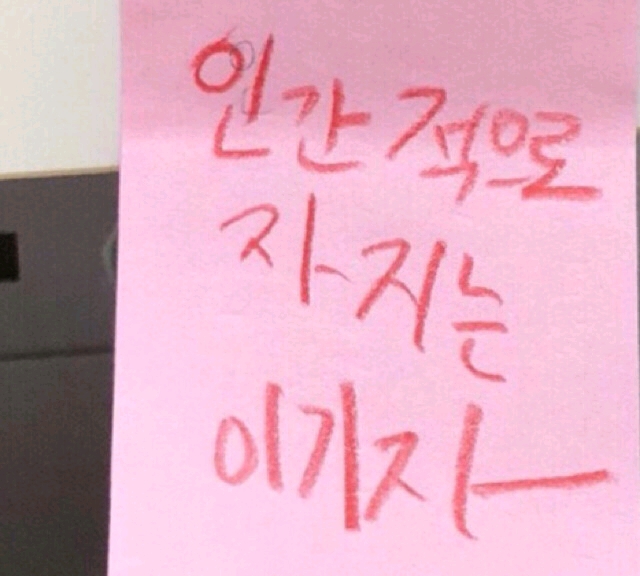 인간적으로
자지는
이기자